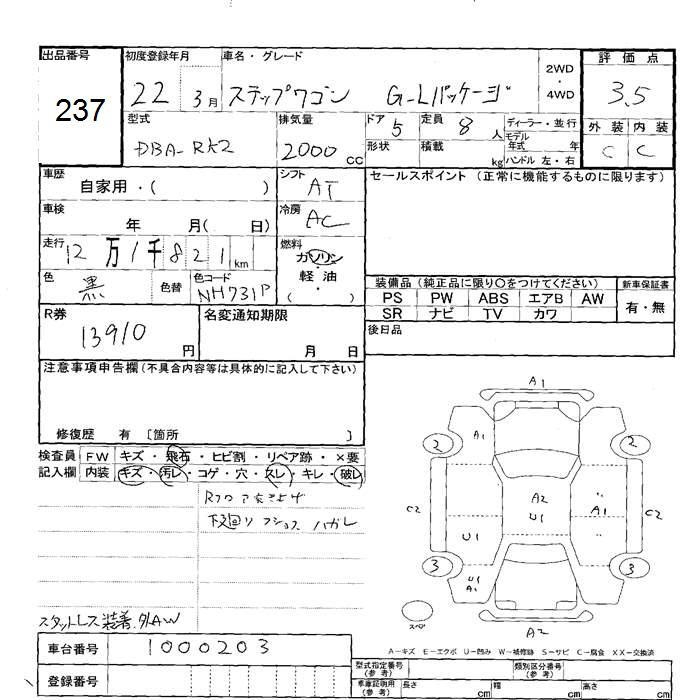 出品番号
237
初度登録年月 車名・グレード 2WD・4WD 評価点
22 3月 ステップワゴン G-Lパッケージ 3.5
型式 排気量 ドア 定員 ディーラー・並行 外装 内装
DBA-RK2 2000cc 5 8人 モデル年式 年 C C
形状 積載 kg ハンドル 左・右
車歴 シフト セールスポイント (正常に機能するものに限ります)
自家用・( ) AT
車検 冷房
年 月( 日) AC
走行 燃料
12万1千821km ガソリン・軽油・( )
色 色替 色コード
黒 NH731P
装備品 (純正品に限り○をつけてください) 新車保証書
PS PW ABS エアB AW 有・無
SR ナビ TV カワ
R券 名変通知期限 後日品
13910円 月 日
注意事項申告欄 (不具合内容等は具体的に記入して下さい)
修復歴 有 [箇所 ]
検査員 FW キズ・飛石・ヒビ割・リペア跡・×要
記入欄 内装 キズ・汚レ・コゲ・穴・スレ・キレ・破レ
下廻り フショク ハガレ
スタットレス装着 外AW
車台番号 1000203
登録番号
A1
2 A1 2
A2
U1 A1
C2 C2
U1
3 U1 A1 3
スペア A2
A-キズ E-エクボ U-凹み W-補修跡 S-サビ C-腐食 XX-交換済
型式指定番号(参考) 類別区分番号(参考)
車庫証明用(参考) 長さ cm 幅 cm 高さ cm